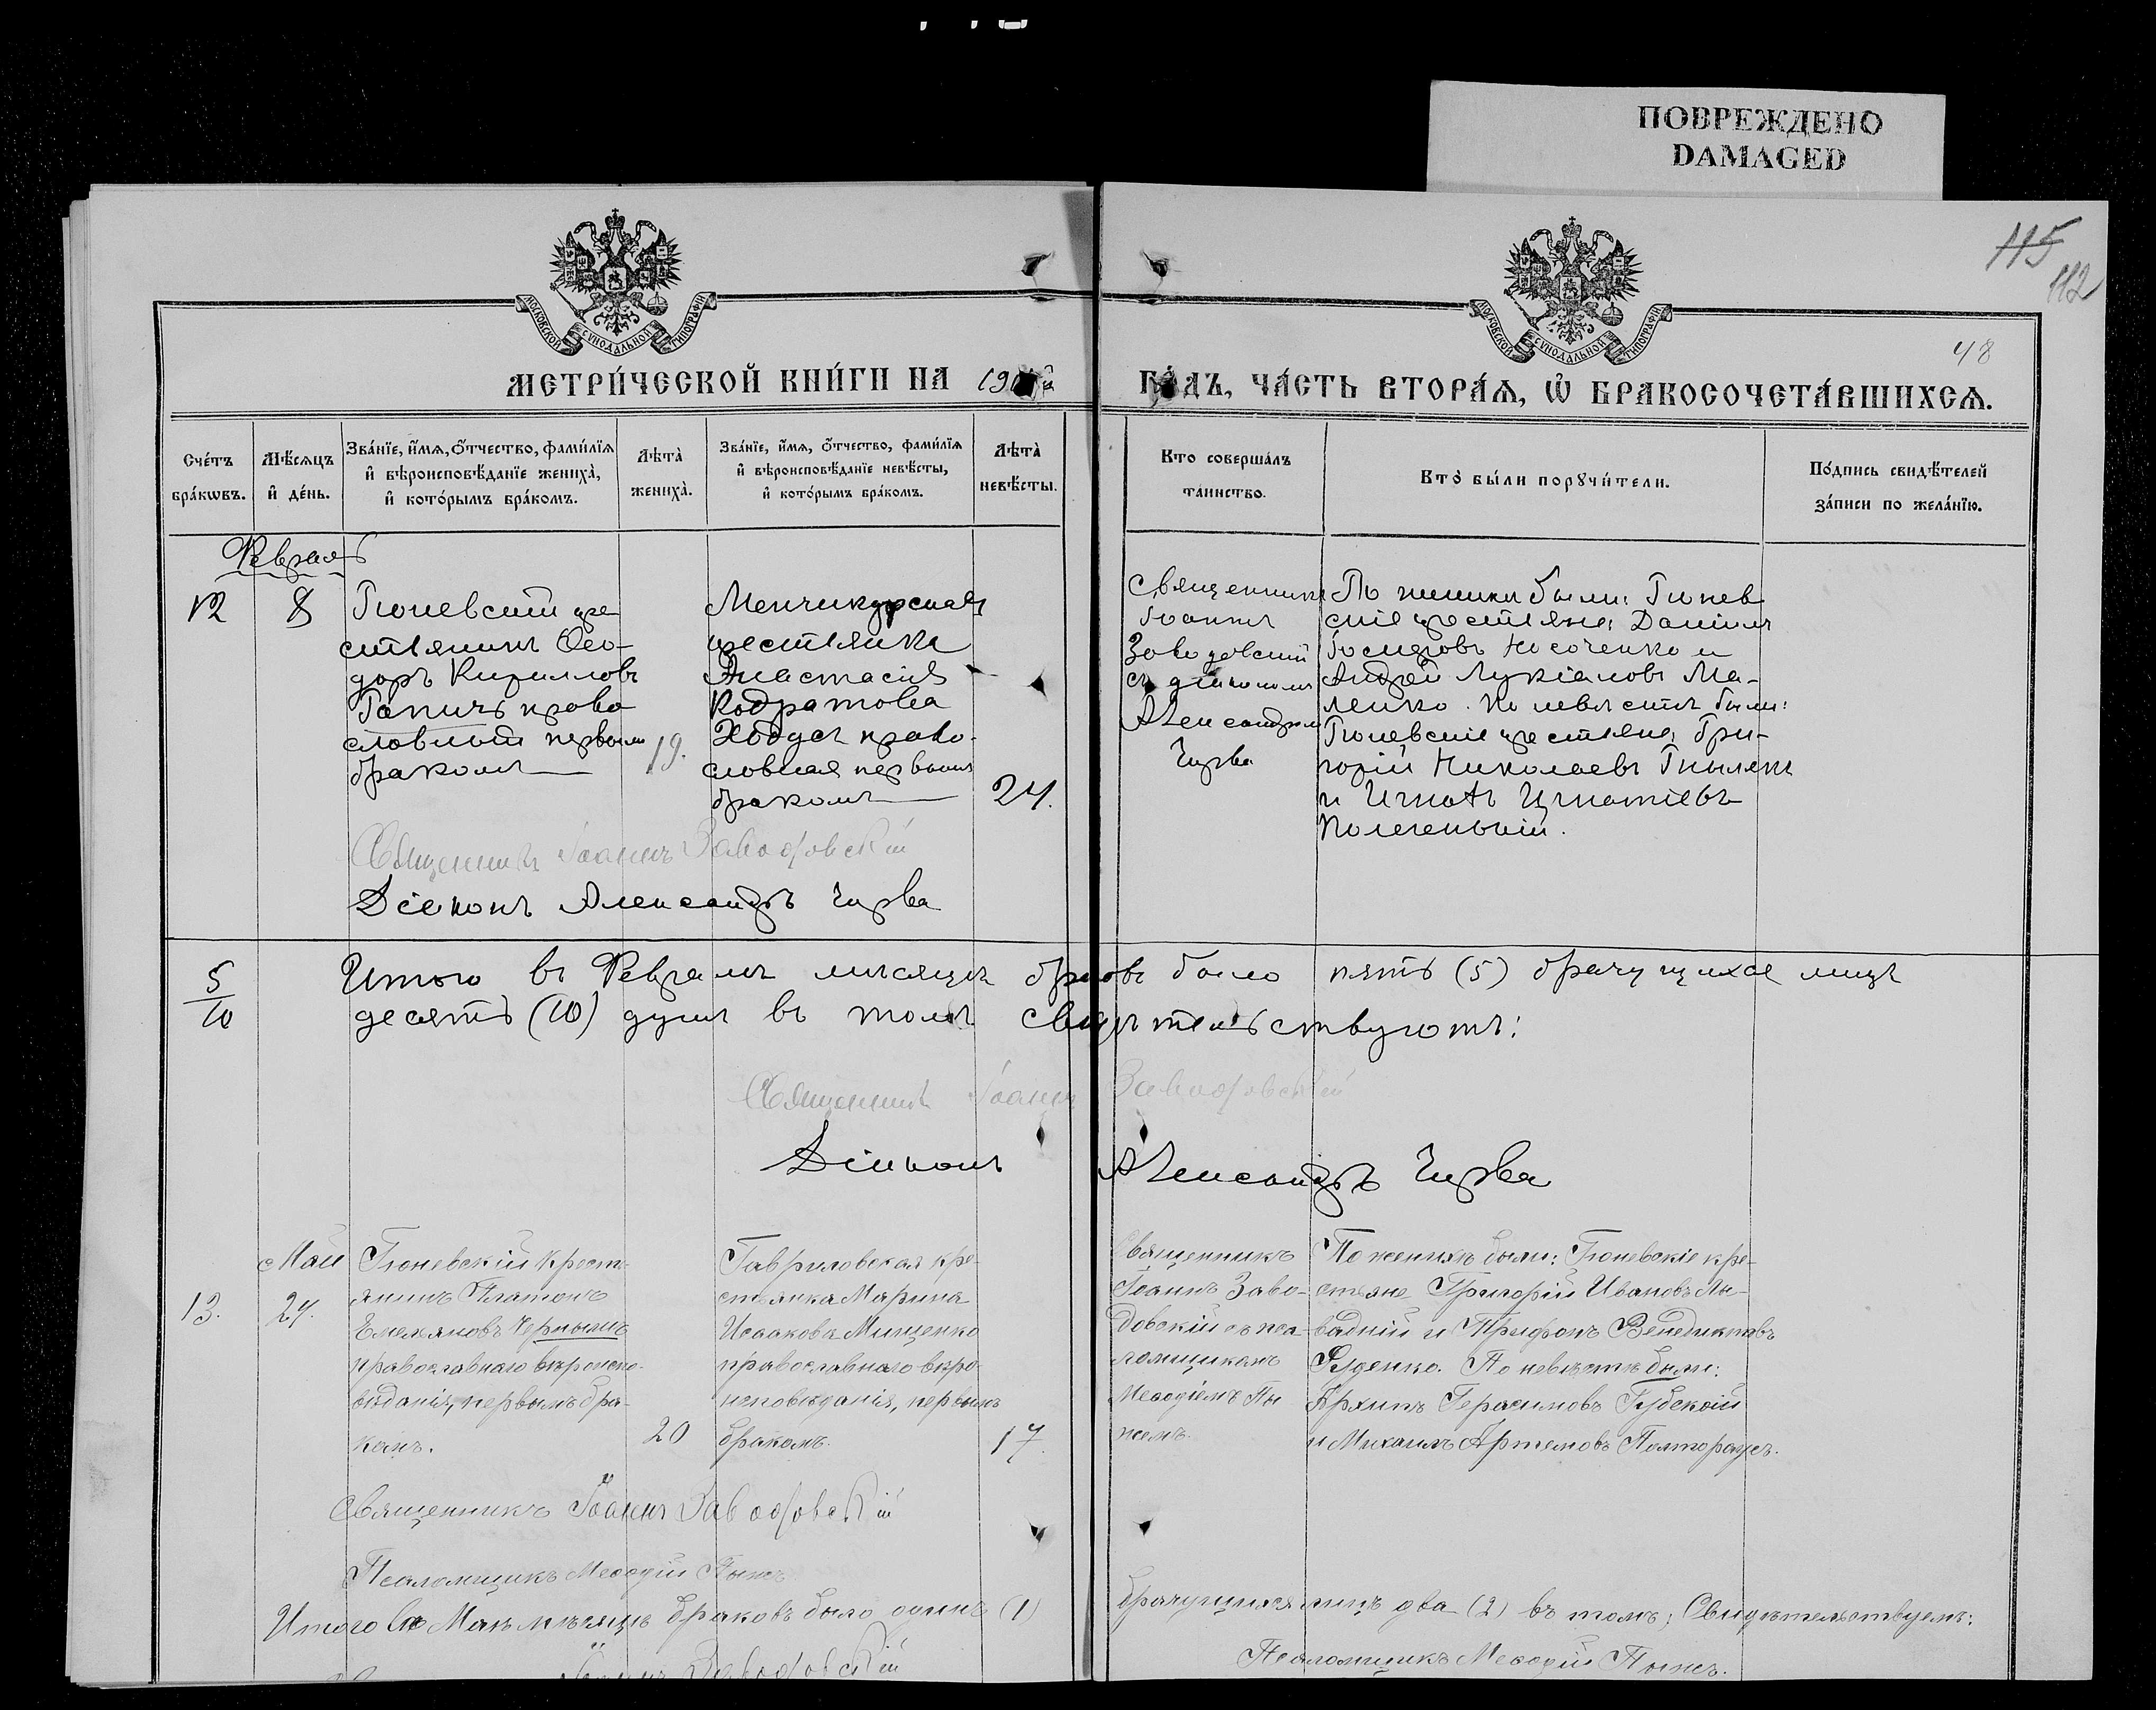 ПОВРЕЖДЕНО
DAMAGED
115
112
48
МОСКОВСКОЙ СѴНОДАЛЬНОЙ ТИПОГРАФІИ
МОСКОВСКОЙ СѴНОДАЛЬНОЙ ТИПОГРАФІИ
МЕТРИ́ЧЕСКОЙ КНИ́ГИ НА
ГО́ДЪ, ЧА́СТЬ ВТОРА́Ѧ, Ѡ҆ БРАКОСОЧЕТА́ВШИХСѦ.
Сче́тъ бра́кѡвъ.
Мѣ́сяцъ и҆ де́нь.
Зва́нїе, и҆́мѧ, ѻ҆́тчество, фами́лїѧ и҆ вѣроисповѣ́данїе жениха̀, и҆ кото́рымъ бра́комъ.
Лѣта̀ жениха̀.
Зва́нїе, и҆́мѧ, ѻ҆́тчество, фами́лїѧ и҆ вѣроисповѣ́данїе невѣ́сты, и҆ кото́рымъ бра́комъ.
Лѣта̀ невѣ́сты.
Кто соверша́лъ та́инство.
Кто̀ бы́ли порꙋчи́тели.
По́дпись свидѣ́телей за́писи по жела́нїю.
Февраль
12
8
Гюневскій кре
стьянинъ Ѳео-
доръ Кирилловъ
Гапичъ право
славный первымъ
бракомъ
19.
Менчикурская
крестьянка
Анастасія
Кодратова
Ходусъ право-
славная первымъ
бракомъ
24.
Священникъ
Іоаннъ
Заводовскій
съ діакономъ
Александромъ
Чирва
По жениху были: Гюнев
скіе крестьяне: Даніилъ
Носоченко и
Андрей Лукіановъ Ма-
ленко. По невѣстѣ были:
Гюневскіе крестьяне Гри-
горій Николаевъ
и Игнатъ Игнатіевъ
Священникъ Іоаннъ Заводовскій
Діаконъ Александръ Чирва
5
10
Итого въ Февралѣ мѣсяцѣ браковъ было пять (5) брачущихся лицъ
десять (10) душъ въ томъ свидѣтельствуютъ:
Священникъ Іоаннъ Заводовскій
Діаконъ Александръ Чирва
Май
13.
24.
Гюневскій крестъ-
янинъ Платонъ
Емельяновъ Чернышъ
православнаго вѣроиспо-
вѣданія, первымъ бра-
комъ.
20
Гавриловская кре-
стьянка Марина
Исаакова Мищенко
православнаго вѣро-
исповѣданія, первымъ
бракомъ.
17.
Священникъ
Іоаннъ Заво-
довскій съ пса-
ломщикомъ
Меѳодіемъ Пы
жемъ.
По женихѣ были: Гюневскіе кре-
стьяне Григорій Ивановъ Лы-
вадній и Трифонъ Венедиктовъ
Руденко. По невѣстѣ были:
Архипъ Герасимовъ Губскій
и Михаилъ Артемовъ Полторацъ.
Священникъ Іоаннъ Заводовскій
Псаломщикъ Меѳодій Пыжъ
Итого въ Маѣ мѣсяцѣ браковъ было одинъ (1) брачущихся лицъ два (2) въ томъ; Свидѣтельствуемъ:
Іоаннъ Заводовскій
Псаломщикъ Меѳодій Пыжъ.